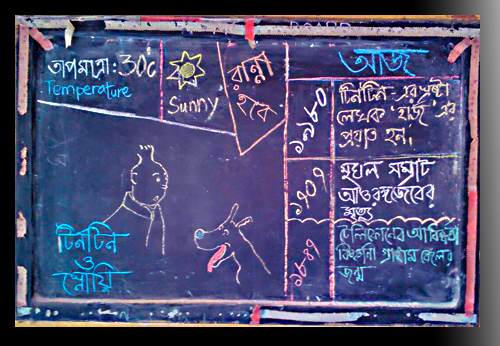 তাপমাত্রা: 30°c
Temperature
Sunny
রান্না
হবে
আজ
টিনটিন-এর স্রষ্টা
লেখক 'হার্জ' এর
প্রয়াত হন।
১৭০৭
মুঘল সম্রাট
আওরঙ্গজেবের
মৃত্যু
টেলিফোনের আবিষ্কর্তা
বিজ্ঞানী গ্রাহাম বেলের
জন্ম
টিনটিন
ও
স্নোয়ি